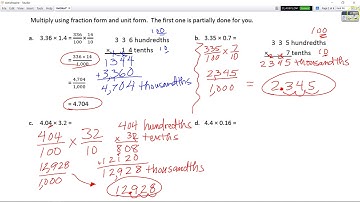 Multiply using fraction form and unit form. The first one is partially done for you.
a. 3.36 × 1.4 = 336/100 × 14/10
= 336 × 14/1,000
= 4,704/1,000
= 4.704
100
3 3 6 hundredths
× 1 4 tenths 10
1344
+3360
4,704 thousandths
b. 3.35 × 0.7 =
335/100 × 7/10
2345/1,000
100
3 3 5 hundredths
× 7 tenths 10
2345 thousandths
2.345
c. 4.04 × 3.2 =
404/100 × 32/10
12,928/1,000
404 hundredths
× 32 tenths
808
12120
12928 thousandths
12.928
d. 4.4 × 0.16 =